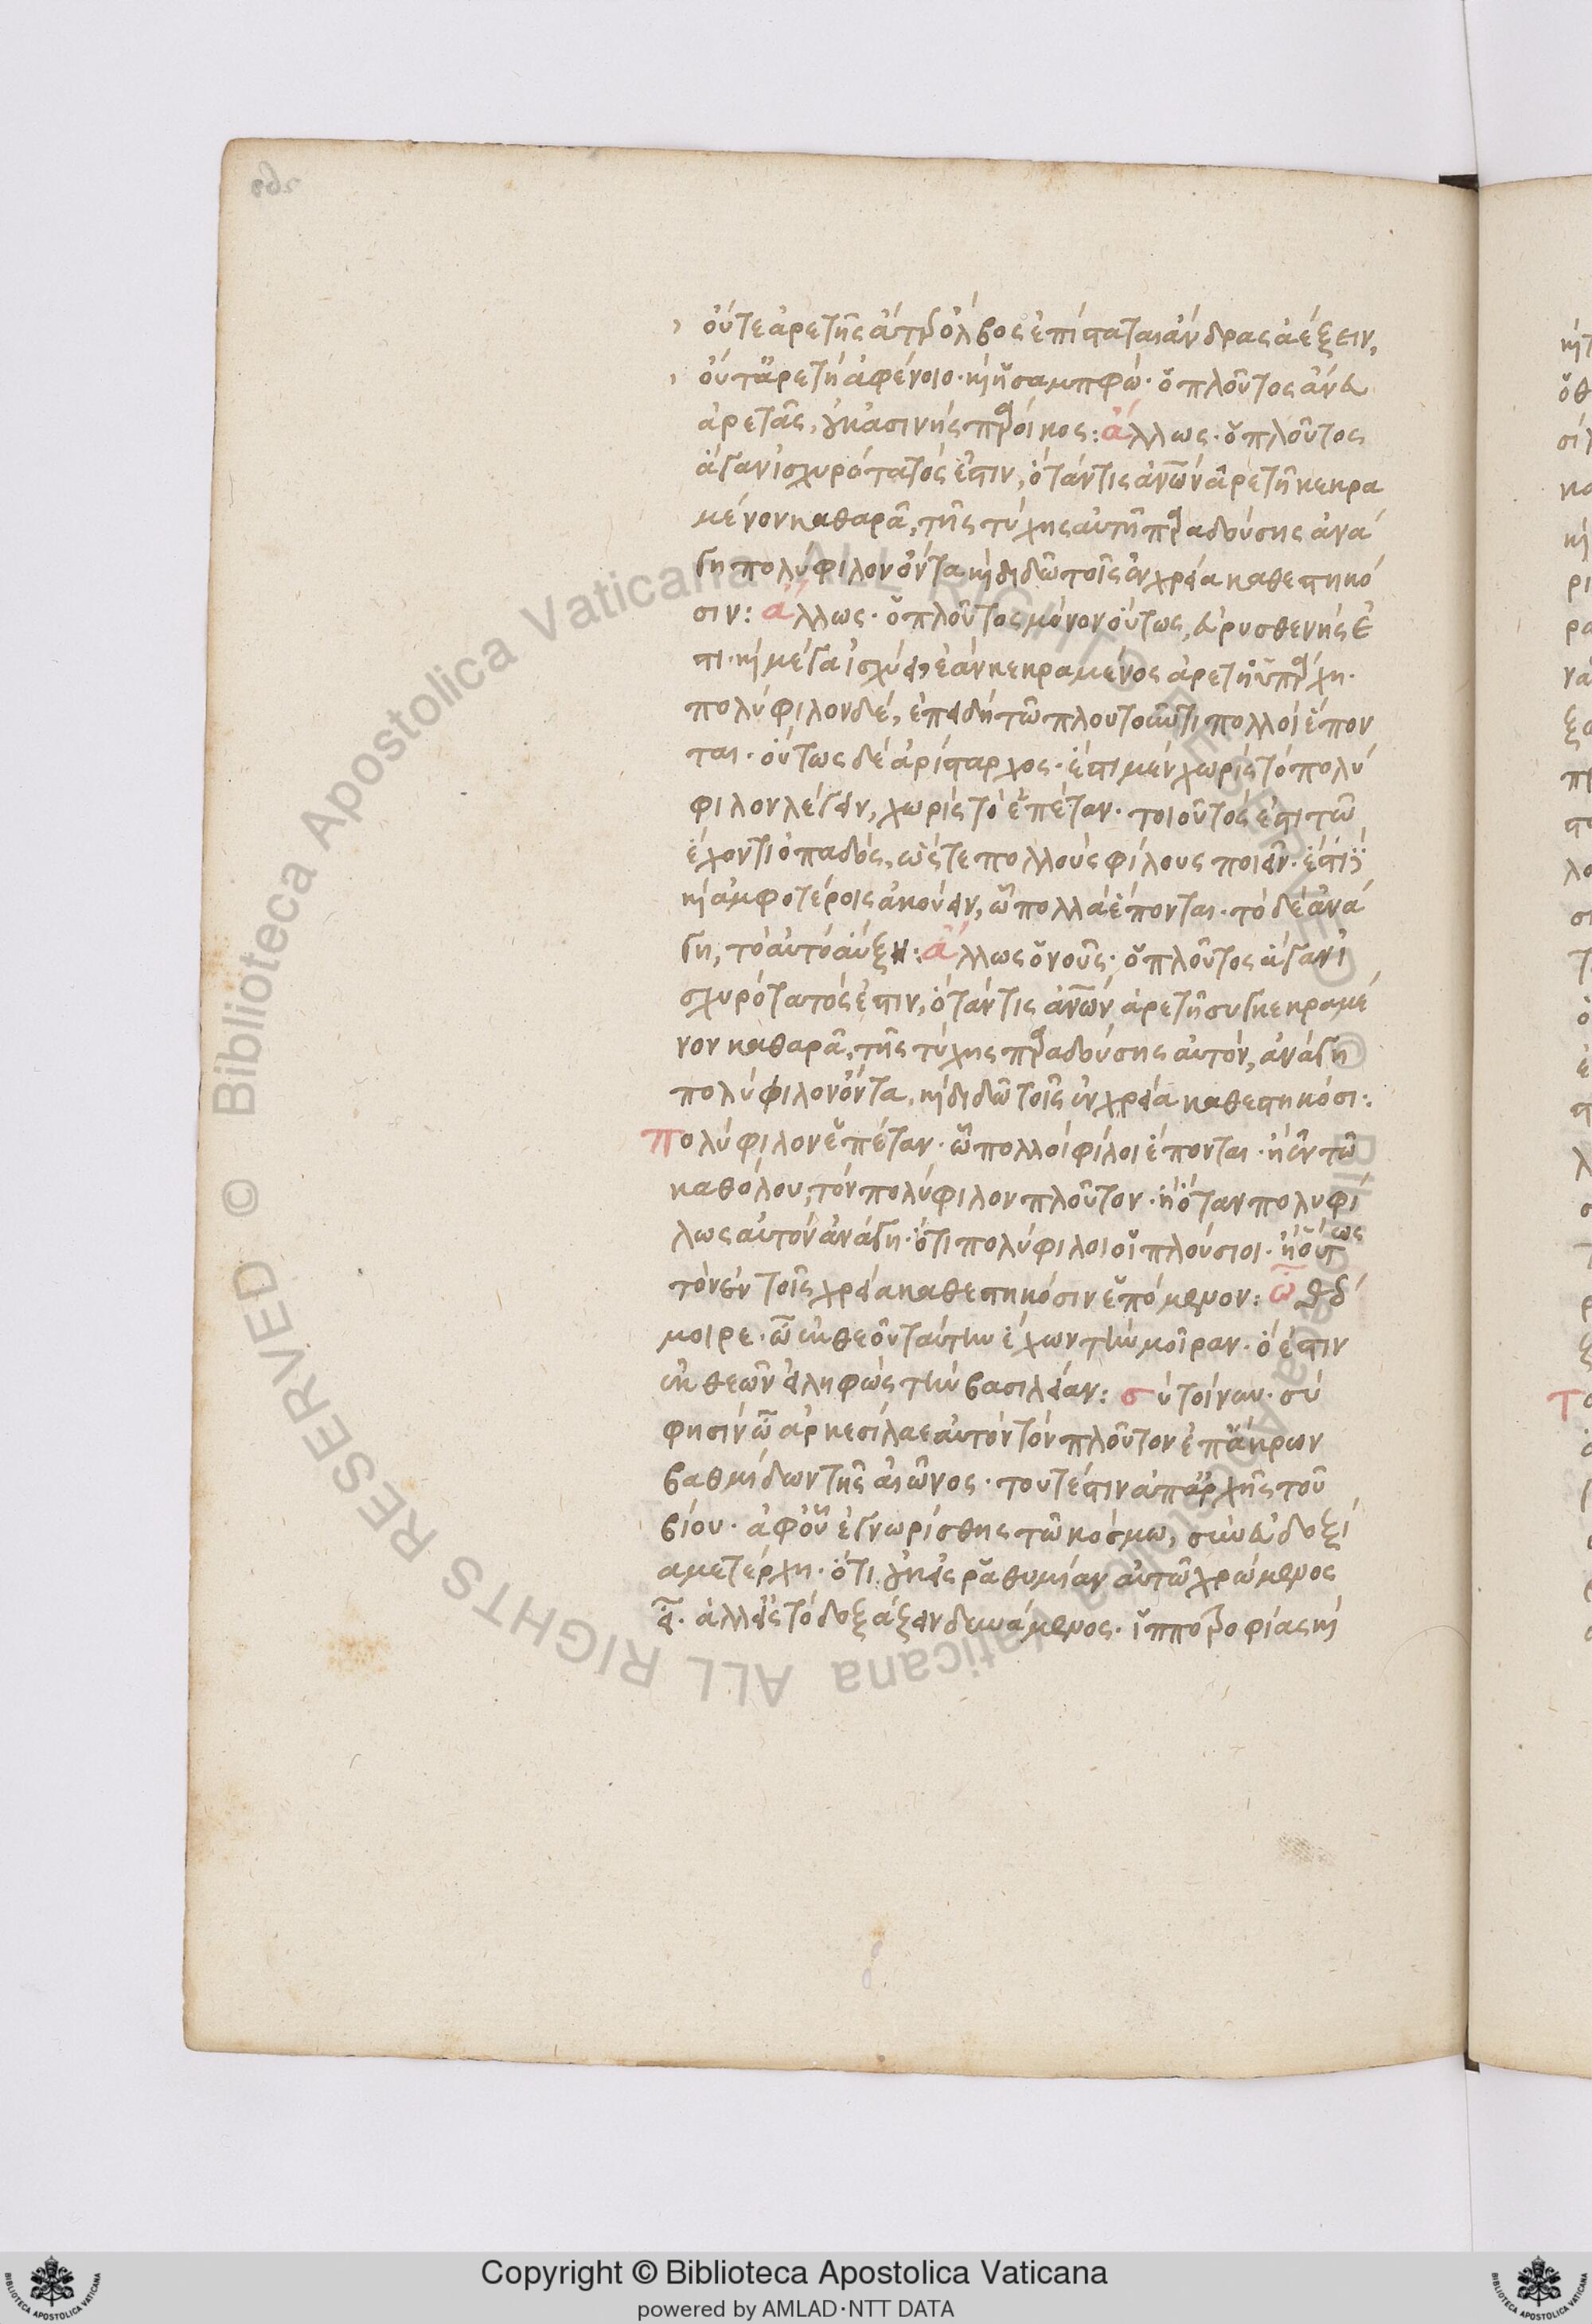 οὔτε ἀρετῆς ἄτερ ὄλβος ἐπίσταται ἄνδρας ἀέξειν,
οὔτ' ἀρετὴ ἀφένοιο. καὶ ἡ σαμπφώ. ὁ πλοῦτος ἄνευ
ἀρετᾶς, οὐκ ἀσινὴς πάροικος: ἄλλως. ὁ πλοῦτος
ἄγαν ἰσχυρότατός ἐστιν, ὅταν τις ἀνθρώπων ἀρετῇ κεκρα
μένον καθαρᾶ, τῆς τύχης αὐτῆ παραδούσης ἀνά
γη πολύφιλον ὄντα καὶ διδῶ τοῖς ἐν χρεία καθεστηκό
σιν: ἄλλως. ὁ πλοῦτος μόνον οὕτως, εὐρυσθενής ἐ
στι. καὶ μέγα ἰσχύει, ἐὰν κεκραμένος ἀρετῆ ὑπάρχη.
πολύφιλον δέ, ἐπειδὴ τῶ πλουτοῦντι πολλοὶ ἕπον
ται. οὕτως δὲ ἀρίσταρχος. ἔστι μὲν χωρὶς τὸ πολύ
φιλον λέγειν, χωρὶς τὸ ἑπέταν. τοιοῦτός ἐστι τῶ
ἔχοντι ὀπαδός, ὥστε πολλοὺς φίλους ποιεῖν. ἔστι δὲ
καὶ ἀμφοτέροις ἀκούειν, ὧ πολλὰ ἕπονται. τὸ δὲ ἀνά
γη, τὸ αὐτὸ αὔξη: ἄλλως ὁ νοῦς. ὁ πλοῦτος ἄγαν ἰ
σχυρότατός ἐστιν, ὅταν τις ἀνθρώπων ἀρετῆ συγκεκραμέ
νον καθαρᾶ, τῆς τύχης παραδούσης αὐτόν, ἀνάγη
πολύφιλον ὄντα, καὶ διδῶ τοῖς ἐν χρεία καθεστηκόσι:
πολύφιλον ἑπέταν. ὧ πολλοὶ φίλοι ἕπονται. ἢ ἐν τῶ
καθόλου, τὸν πολύφιλον πλοῦτον. ἢ ὅταν πολυφί
λως αὐτὸν ἀνάγη. ὅτι πολύφιλοι οἱ πλούσιοι. ἢ οὕτως
τὸν ἐν τοῖς χρεία καθεστηκόσιν ἑπόμενον: ὦ θεό
μοιρε. ὦ ἐκ θεοῦ ταύτην ἔχων τὴν μοῖραν. ὅ ἐστιν
ἐκ θεῶν εἰληφὼς τὴν βασιλείαν: σύ τοί νιν. σύ
φησὶν ὦ ἀρκεσίλαε αὐτὸν τὸν πλοῦτον ἐπ' ἄκρων
βαθμίδων τῆς αἰῶνος. τουτέστιν ἀπ' ἀρχῆς τοῦ
βίου. ἀφ' οὗ ἐγνωρίσθης τῶ κόσμω, σὺν εὐδοξί
α μετέρχη. ὅτι οὐκ εἰς ῥαθυμίαν αὐτῶ χρώμενος
εἶ. ἀλλ' εἰς τὸ δόξα ἕξειν δεινάμενος. ἱπποτροφίας καὶ